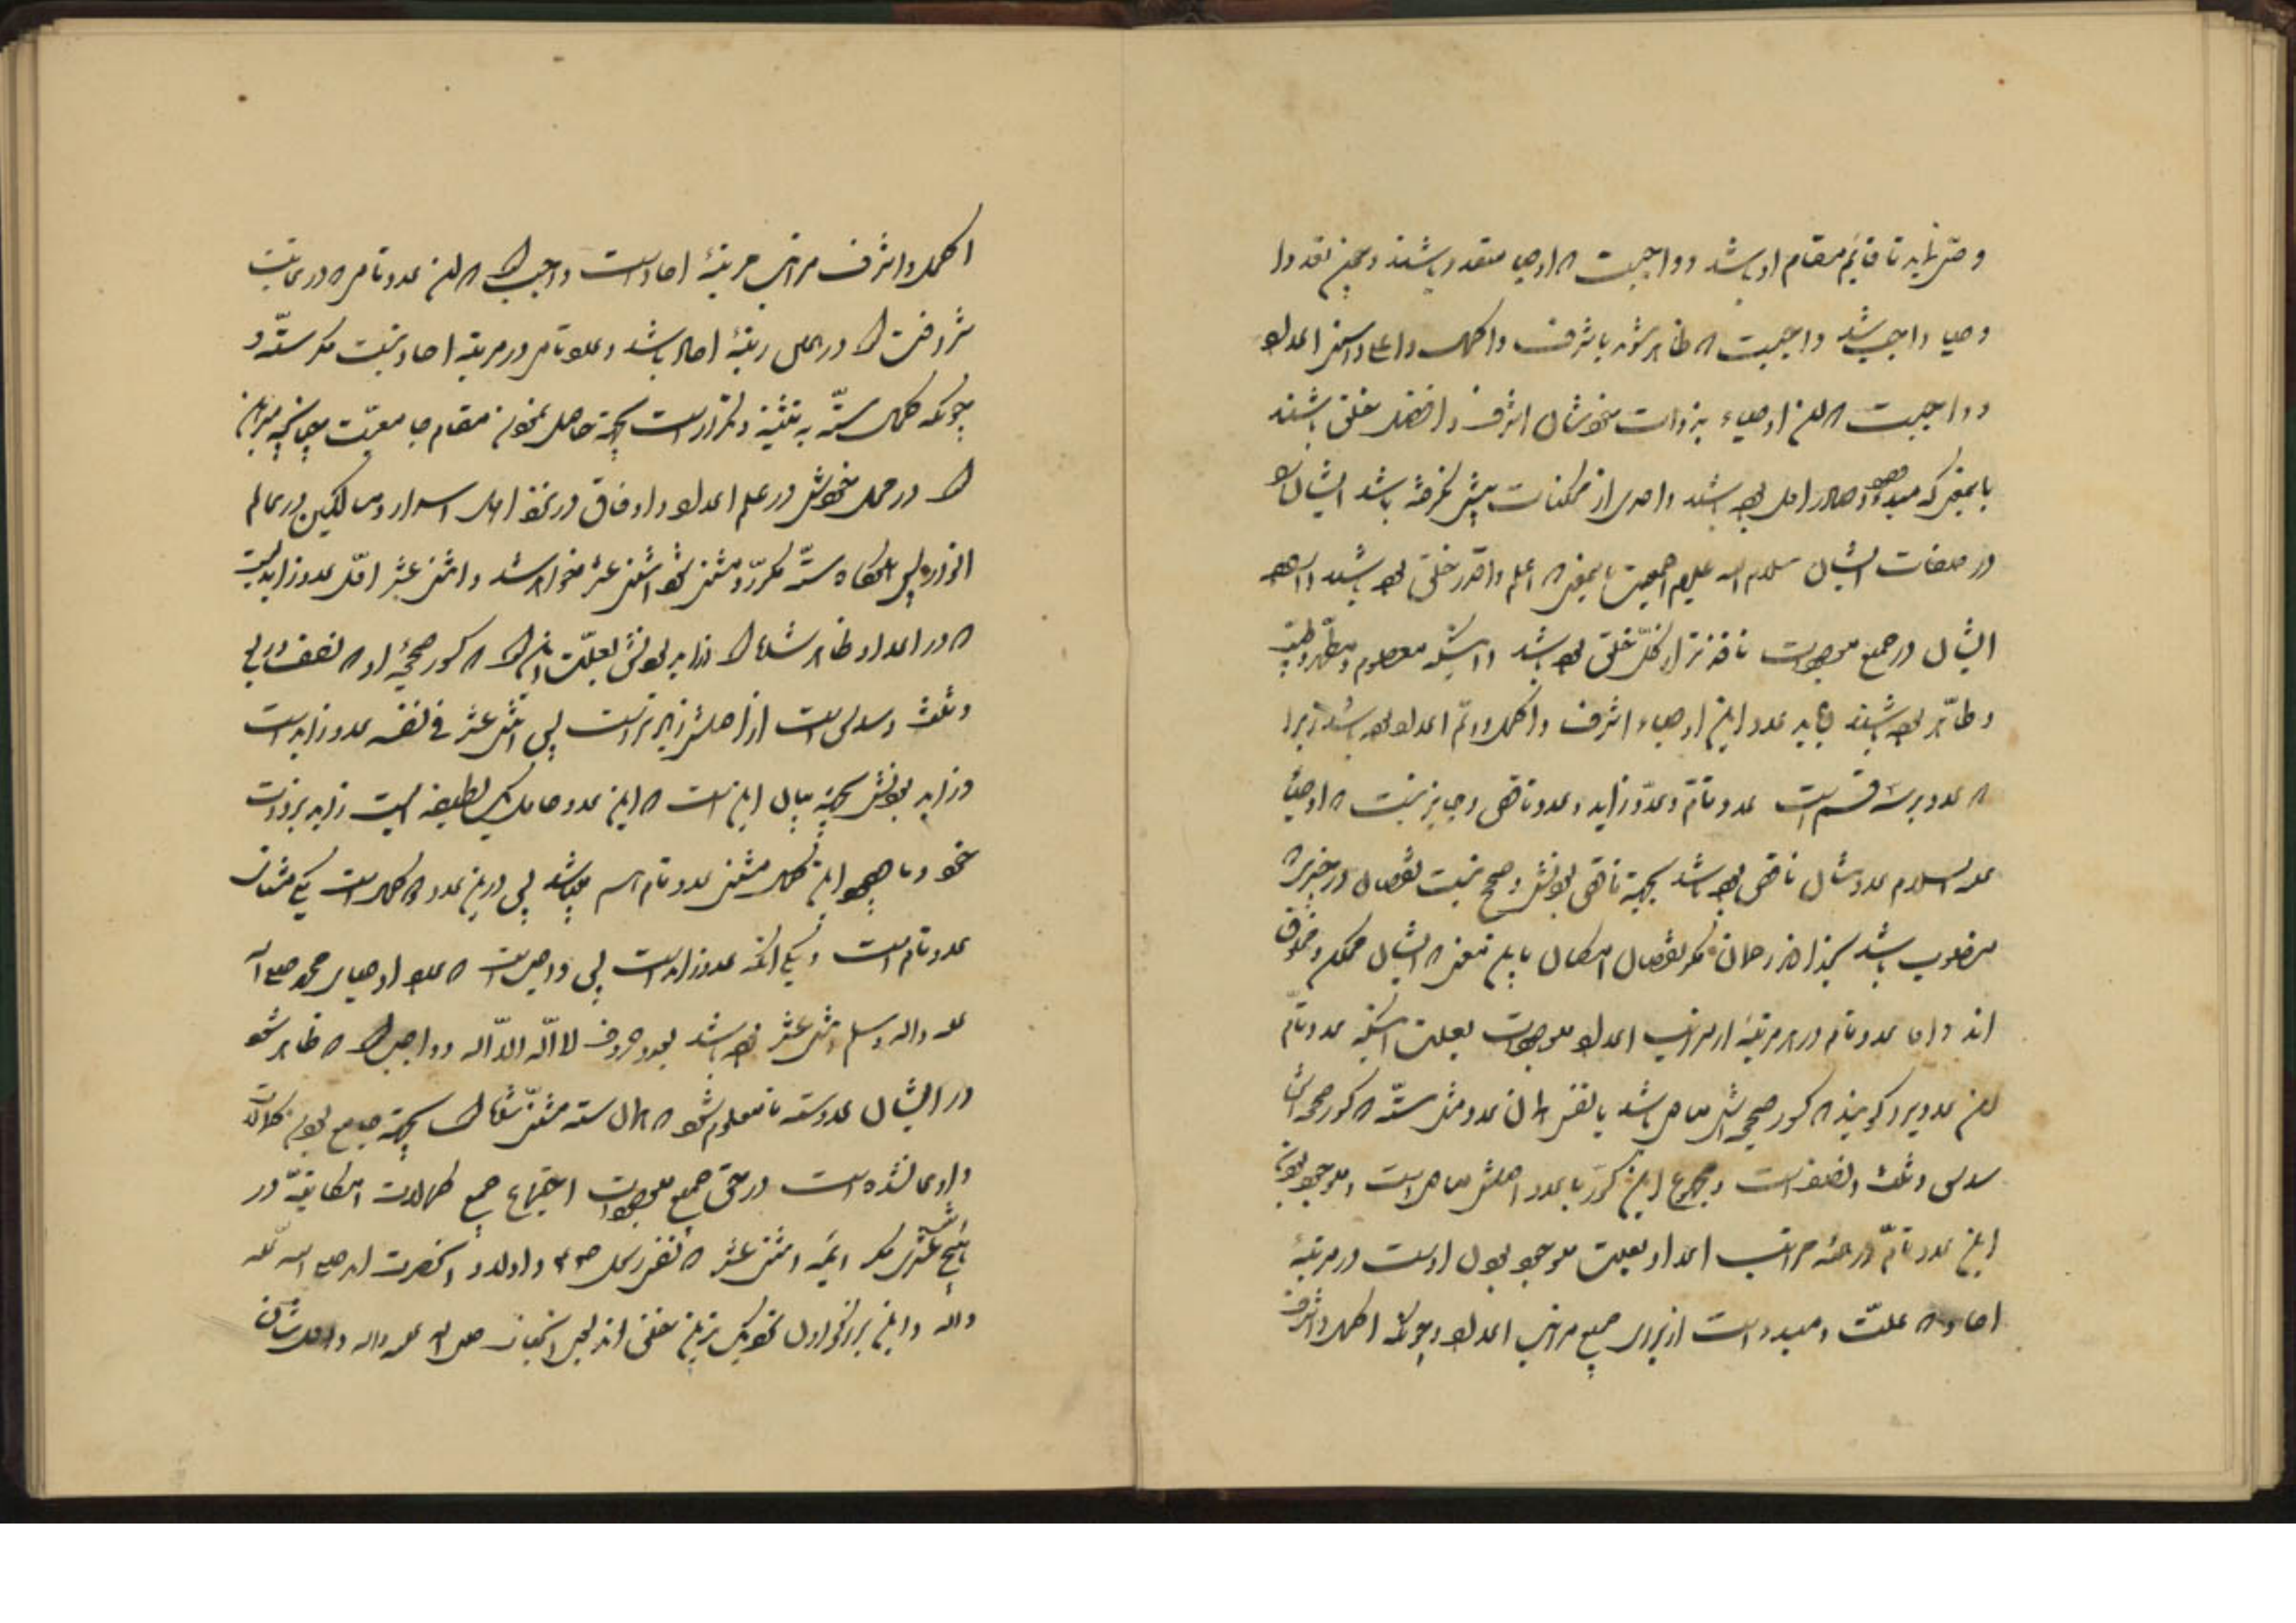 وصی نماید تا قایم مقام او باشد و واجبست که اوصیا متعدد باشند و همچنین تعدد
اوصیا واجب شد واجبست که ظاهر شوند باشرف و اکمل و اعلا و اسنی اعداد
و واجبست که این اوصیاء بذوات خودشان اشرف و افضل خلق باشند
بایمعنی که مبدء وجود صادر اول بوده باشند و احدی از ممکنات پیش نگرفته باشد ایشانرا
در صفات ایشان سلام الله علیهم اجمعین بایمعنی که اعلم و اقدر خلق بوده باشند و اراده
ایشان در جمیع موجودات نافذتر از کل خلق بوده باشد و اینکه معصوم و مطهر و طیب
و طاهر بوده باشند باید عدد این اوصیاء اشرف و اکمل و اتم اعداد بوده باشد زیرا
که عدد بر سه قسم است عدد تام و عدد زاید و عدد ناقص و جایز نیست که اوصیا
علیه السلام عددشان ناقص بوده باشد بجهة ناقص بودنش و صحیح نیست نقصان در چیزیکه
منسوب باشد بخداوند رحمان مگر نقصان امکان باین معنی که ایشان ممکن و مخلوق
اند و اما عدد تام در هر مرتبه از مراتب اعداد موجود است بعلت اینکه عدد تام
این عددیرا گویند که کسور صحیحه اش مساوی باشد با نفس همان عدد مثل ستّه که کسور صحیحه اش
سدس و ثلث و نصف است و مجموع این کسور با عدد اصلش مساویست و موجود بودن
این عدد تامّ در همه مراتب اعداد بعلت موجود بودن اوست در مرتبهٔ
احاد که علّت و مبدء است از برای جمیع مراتب اعداد و چونکه اکمل و اشرف
اکمل و اشرف مراتب مرتبهٔ احاد است واجب شد که این عدد تامی که در نهایت
شرافت شد در اعلی رتبهٔ احاد باشد و عدد تام در مرتبه احاد نیست مگر ستّه و
چونکه کمال ستّه به تثنیه و تکرار است بجهة حامل بودن مقام جامعیّت چنانچه مبرهن
شد در محل خودش در علم اعداد و اوفاق در نزد اهل اسرار و سالکین در عالم
انوار پس هرگاه ستّه مکرّر و مثنی شود اثنی عشر خواهد شد و اثنی عشر اوّل عدد زاید است
که در اعداد ظاهر شد اما زاید بودنش بعلّت این شد که کسور صحیحهٔ او که نصف و ربع
و ثلث و سدس است از اصلش زیادتر است پس اثنی عشر فی نفسه عدد زاید است
و زاید بودنش بجهة بیان این است که این عدد حامل یک لطیفه ایست زاید بر ذات
خود و با وجود این کمال مثنی عدد تام هم میباشد پس در این عدد دو کمال است یکی مثنای
عدد تام است و یکی آنکه عدد زاید است پس واجب است که عدد اوصیاء محمد صلی الله
علیه و اله و سلم اثنی عشر بوده باشد بعدد حروف لا اله الا اله و واجب شد که ظاهر شود
در ایشان عدد ستّه تا معلوم شود که همان ستّه مثنّی شد بجهة جامع بودن کمالات
و ادعا نشده است در حق جمیع موجودات اجتماع جمیع کمالات امکانیّه در
هیچ شخصی مگر ائمه اثنی عشر که نفس رسول ص و اولاد آنحضرت اند صلی الله علیه
واله و این بزرگواران نخستین خلق اند بعد از انجناب صلی الله علیه واله و اول شان